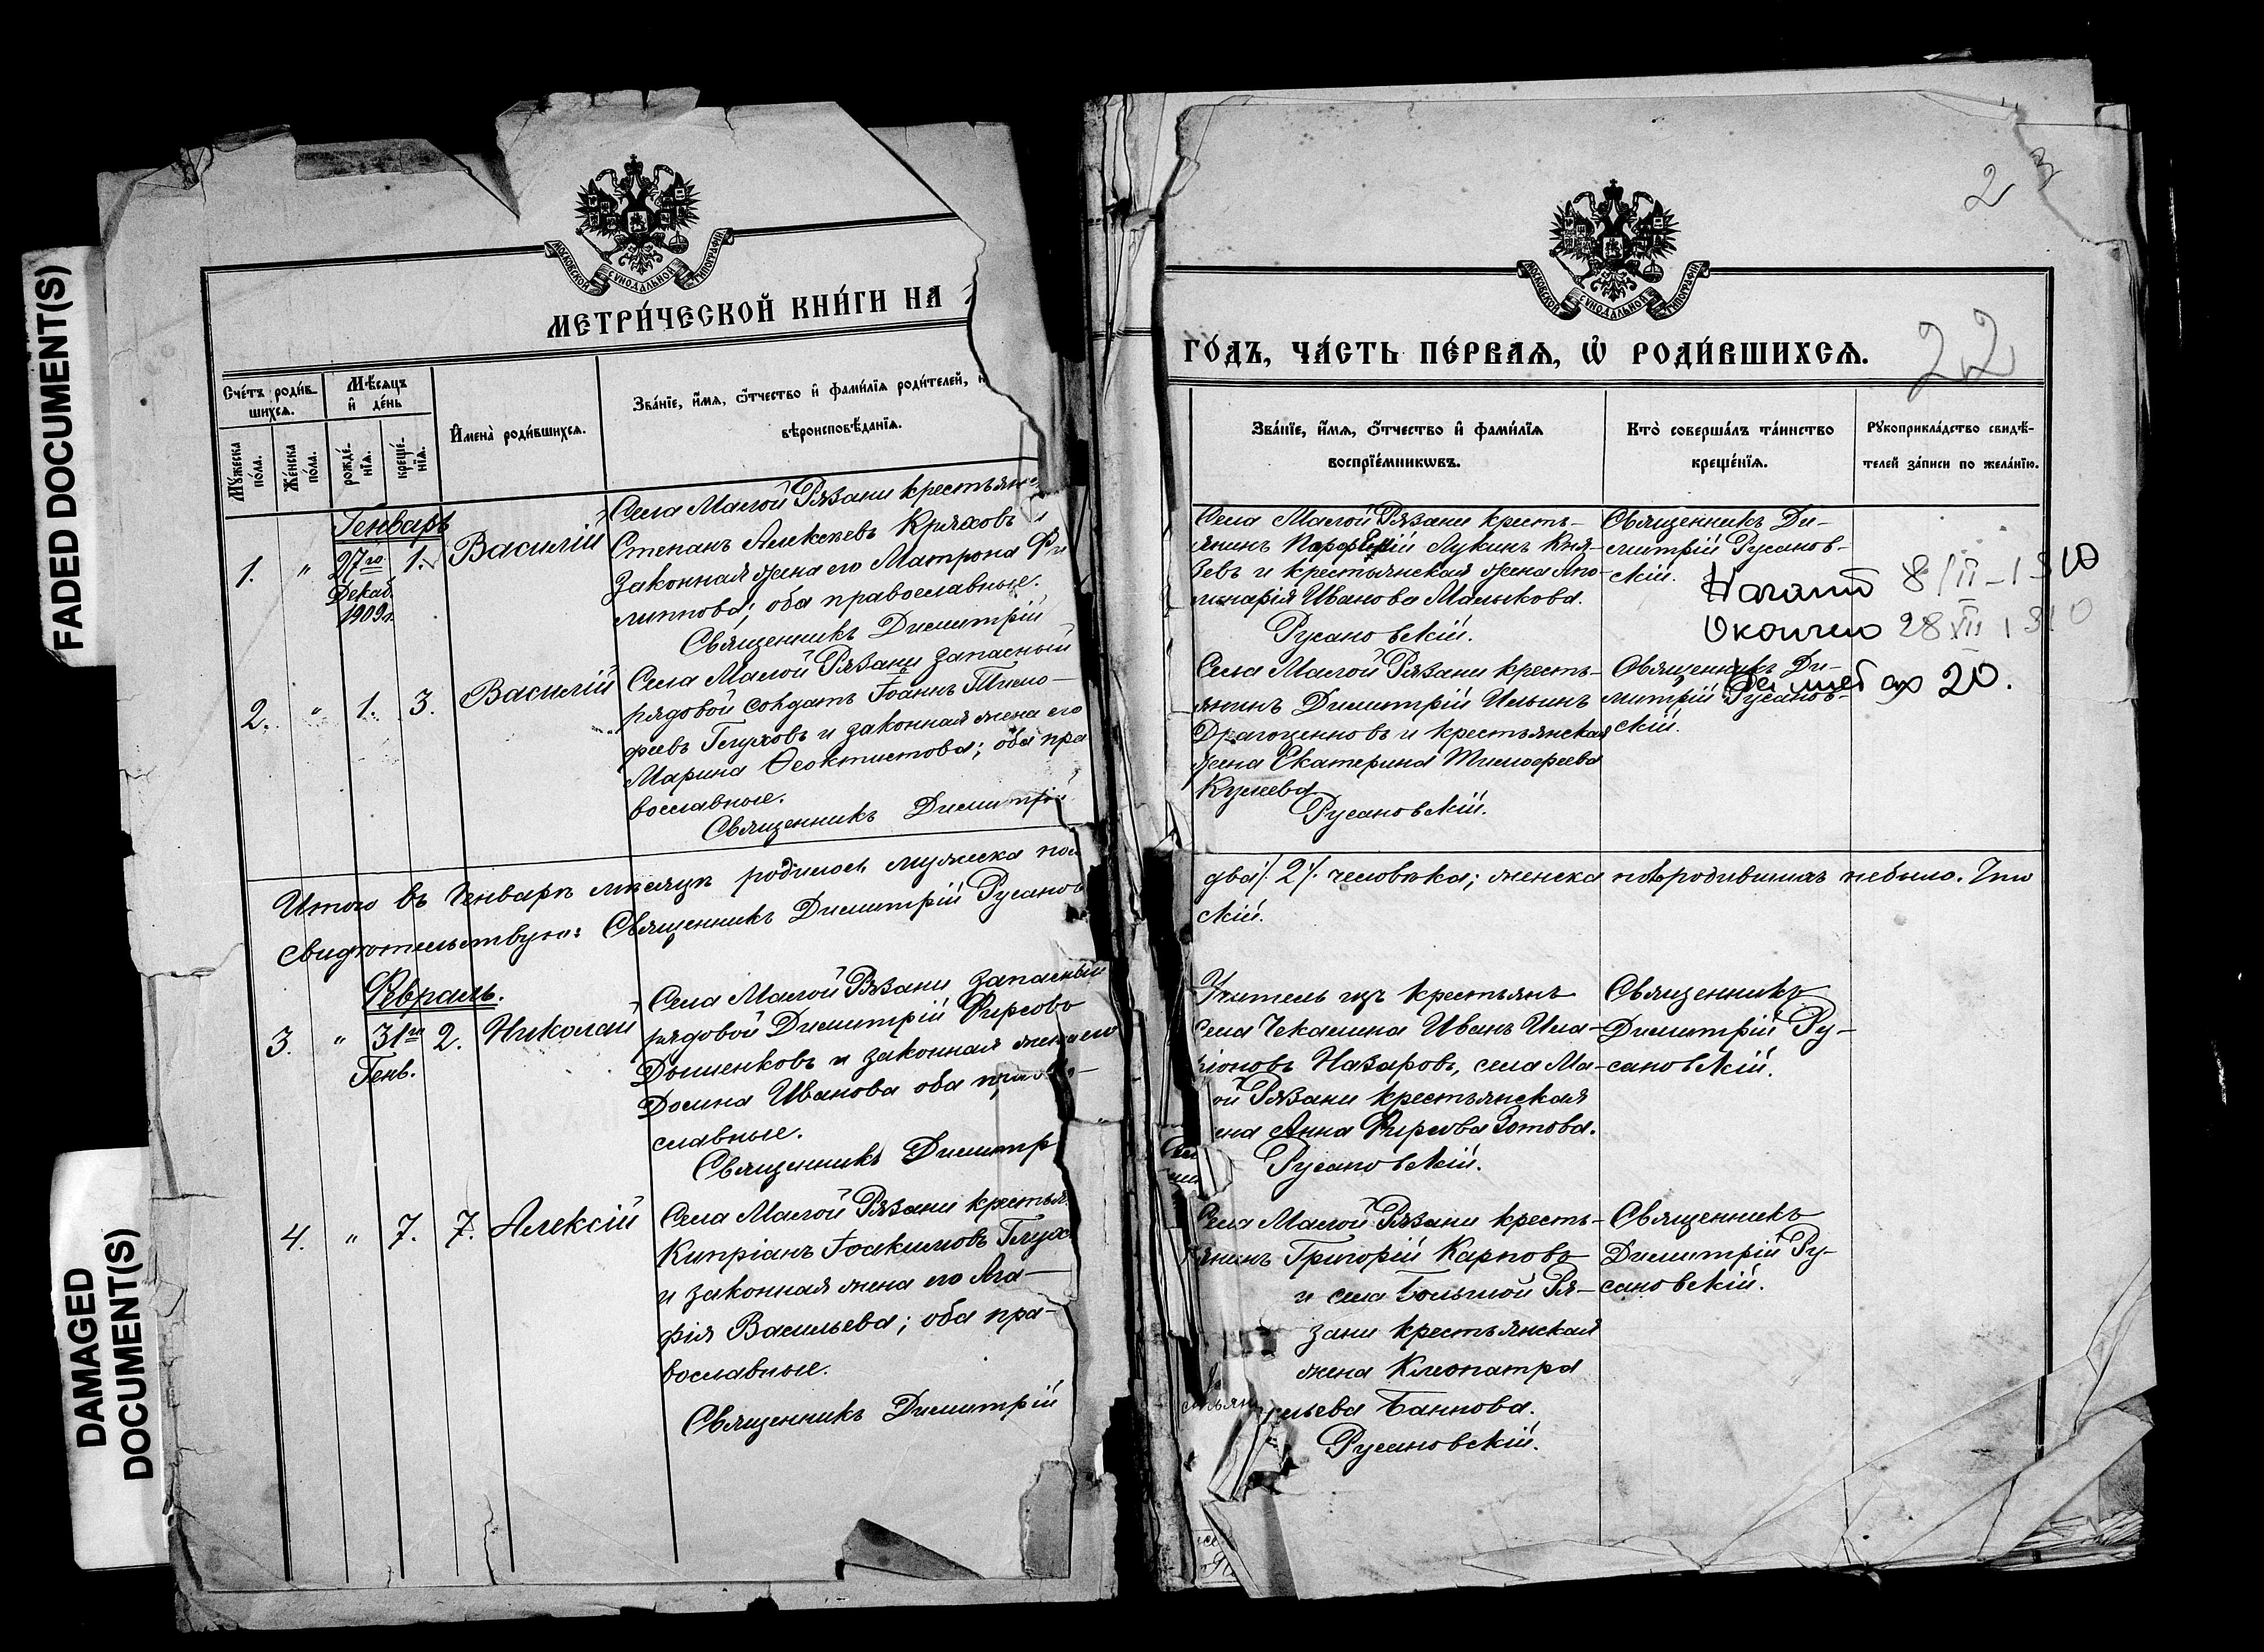 FADED DOCUMENT(S)
DAMAGED
DOCUMENT(S)
МОСКОВСКОЙ СѴНОДАЛЬНОЙ ТИПОГРАФІИ
МЕТРИ́ЧЕСКОЙ КНИ́ГИ НА
Сче́тъ роди́в-
шихсѧ.
Мѣ́сѧцъ
и҆ де́нь
Мꙋ́жеска
по́ла.
Же́нска
по́ла.
рожде́-
нїѧ.
креще́-
нїѧ.
И҆мена̀ роди́вшихсѧ.
Зва́нїе, и҆́мѧ, ѻ҆́тчество и҆ фами́лїѧ роди́телей,
вѣроисповѣ́данїѧ.
Генварь
1. " 27го 1. Василій
Декаб.
1909г.
Села Малой Рязани крестьян
Степанъ Алексѣевъ Кряховъ и
законная жена его Матрона Фи
липпова; оба православные.
Священникъ Димитрій
2. " 1. 3. Василій
Села Малой Рязани запасный
рядовой солдатъ Іоаннъ Тимо-
феевъ Глуховъ и законная жена его
Марина Ѳеоктистова; оба пра
вославные.
Священникъ Димитрій
Итого въ Генварѣ мѣсяцѣ родилось мужеска пол
свидѣтельствую: Священникъ Димитрій Русанов
Февраль.
3. " 31го 2. Николай
Генв.
Села Малой Рязани запасный
рядовой Димитрій Фирсовъ
законная жена его
Домна Иванова оба право-
славные.
Священникъ Димитр
4. " 7. 7. Алексій
Села Малой Рязани крестья
Кипріанъ Іоакимовъ Глухо
и законная жена его Ага-
фія Васильева; оба пра-
вославные.
Священникъ Димитрій
2 3
22
МОСКОВСКОЙ СѴНОДАЛЬНОЙ ТИПОГРАФІИ
ГО́ДЪ, ЧА́СТЬ ПЕ́РВАѦ, Ѡ҆ РОДИ́ВШИХСѦ.
Зва́нїе, и҆́мѧ, ѻ҆́тчество и҆ фами́лїѧ
воспрїе́мникѡвъ.
Кто̀ соверша́лъ та́инство
креще́нїѧ.
Рꙋкоприкла́дство свидѣ́-
телей за́писи по жела́нїю.
Села Малой Рязани кресть-
янинъ Парфеній Лукинъ Кня-
зевъ и крестьянская жена Апо-
линарія Иванова Малыкова.
Русановскій.
Священникъ Ди-
митрій Русанов-
скій.
Начато 8/II-1910
Окончено 28 XII 1910
20.
Села Малой Рязани кресть-
янинъ Димитрій Ильинъ
Драгоценновъ и крестьянская
жена Екатерина Тимофеева
Русановскій.
Священникъ Ди-
митрій Русанов-
скій.
два /. 2 /. человѣка; женска родившихъ небыло. Что
скій.
Учитель изъ крестьянъ
села Чекалина Иванъ Ила-
ріоновъ Назаровъ, села Ма-
ой Рязани крестьянская
ена Анна Фирсова Зотова.
Русановскій.
Священникъ
Димитрій Ру-
сановскій.
Села Малой Рязани кресть-
янинъ Григорій Карповъ
и села Большой Ря-
зани крестьянская
жена Клеопатра
льева Баннова.
Русановскій.
Священникъ
Димитрій Ру-
сановскій.